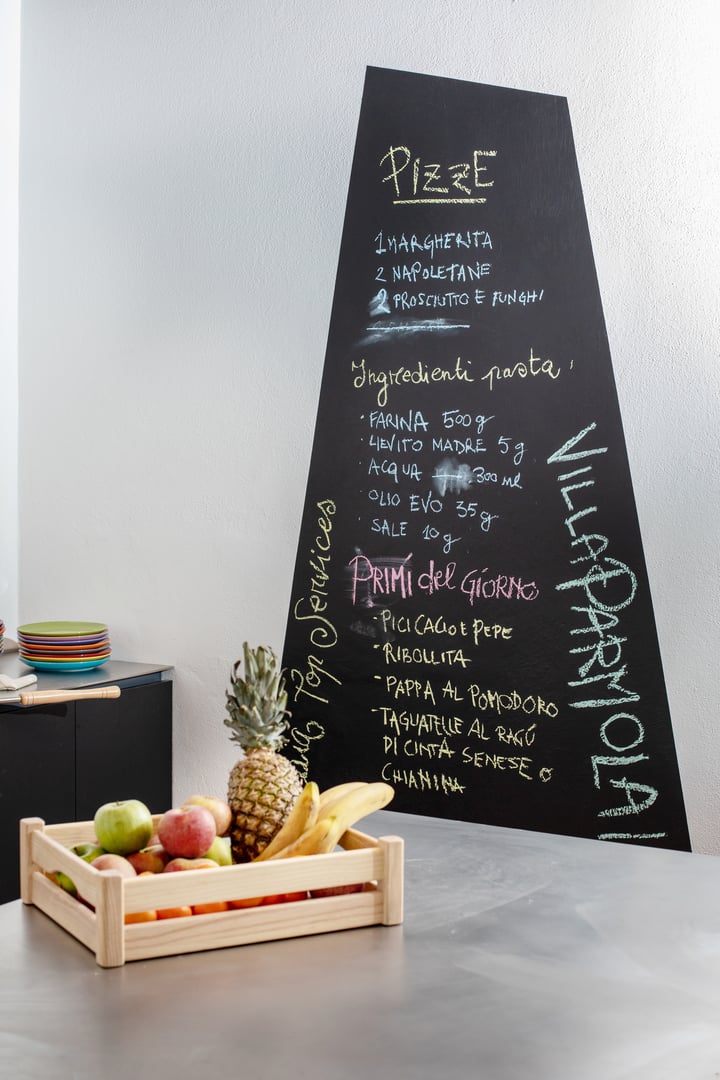 PIZZE
1 MARGHERITA
2 NAPOLETANE
2 PROSCIUTTO E FUNGHI
Ingredienti pasta:
· FARINA 500 g
· LIEVITO MADRE 5 g
· ACQUA 300 ml
· OLIO EVO 35 g
· SALE 10 g
PRIMI del GIORNO
- PICI CACIO E PEPE
- RIBOLLITA
- PAPPA AL POMODORO
- TAGLIATELLE AL RAGÚ
DI CINTA SENESE O
CHIANINA
Top Services
VILLA PARMOLA